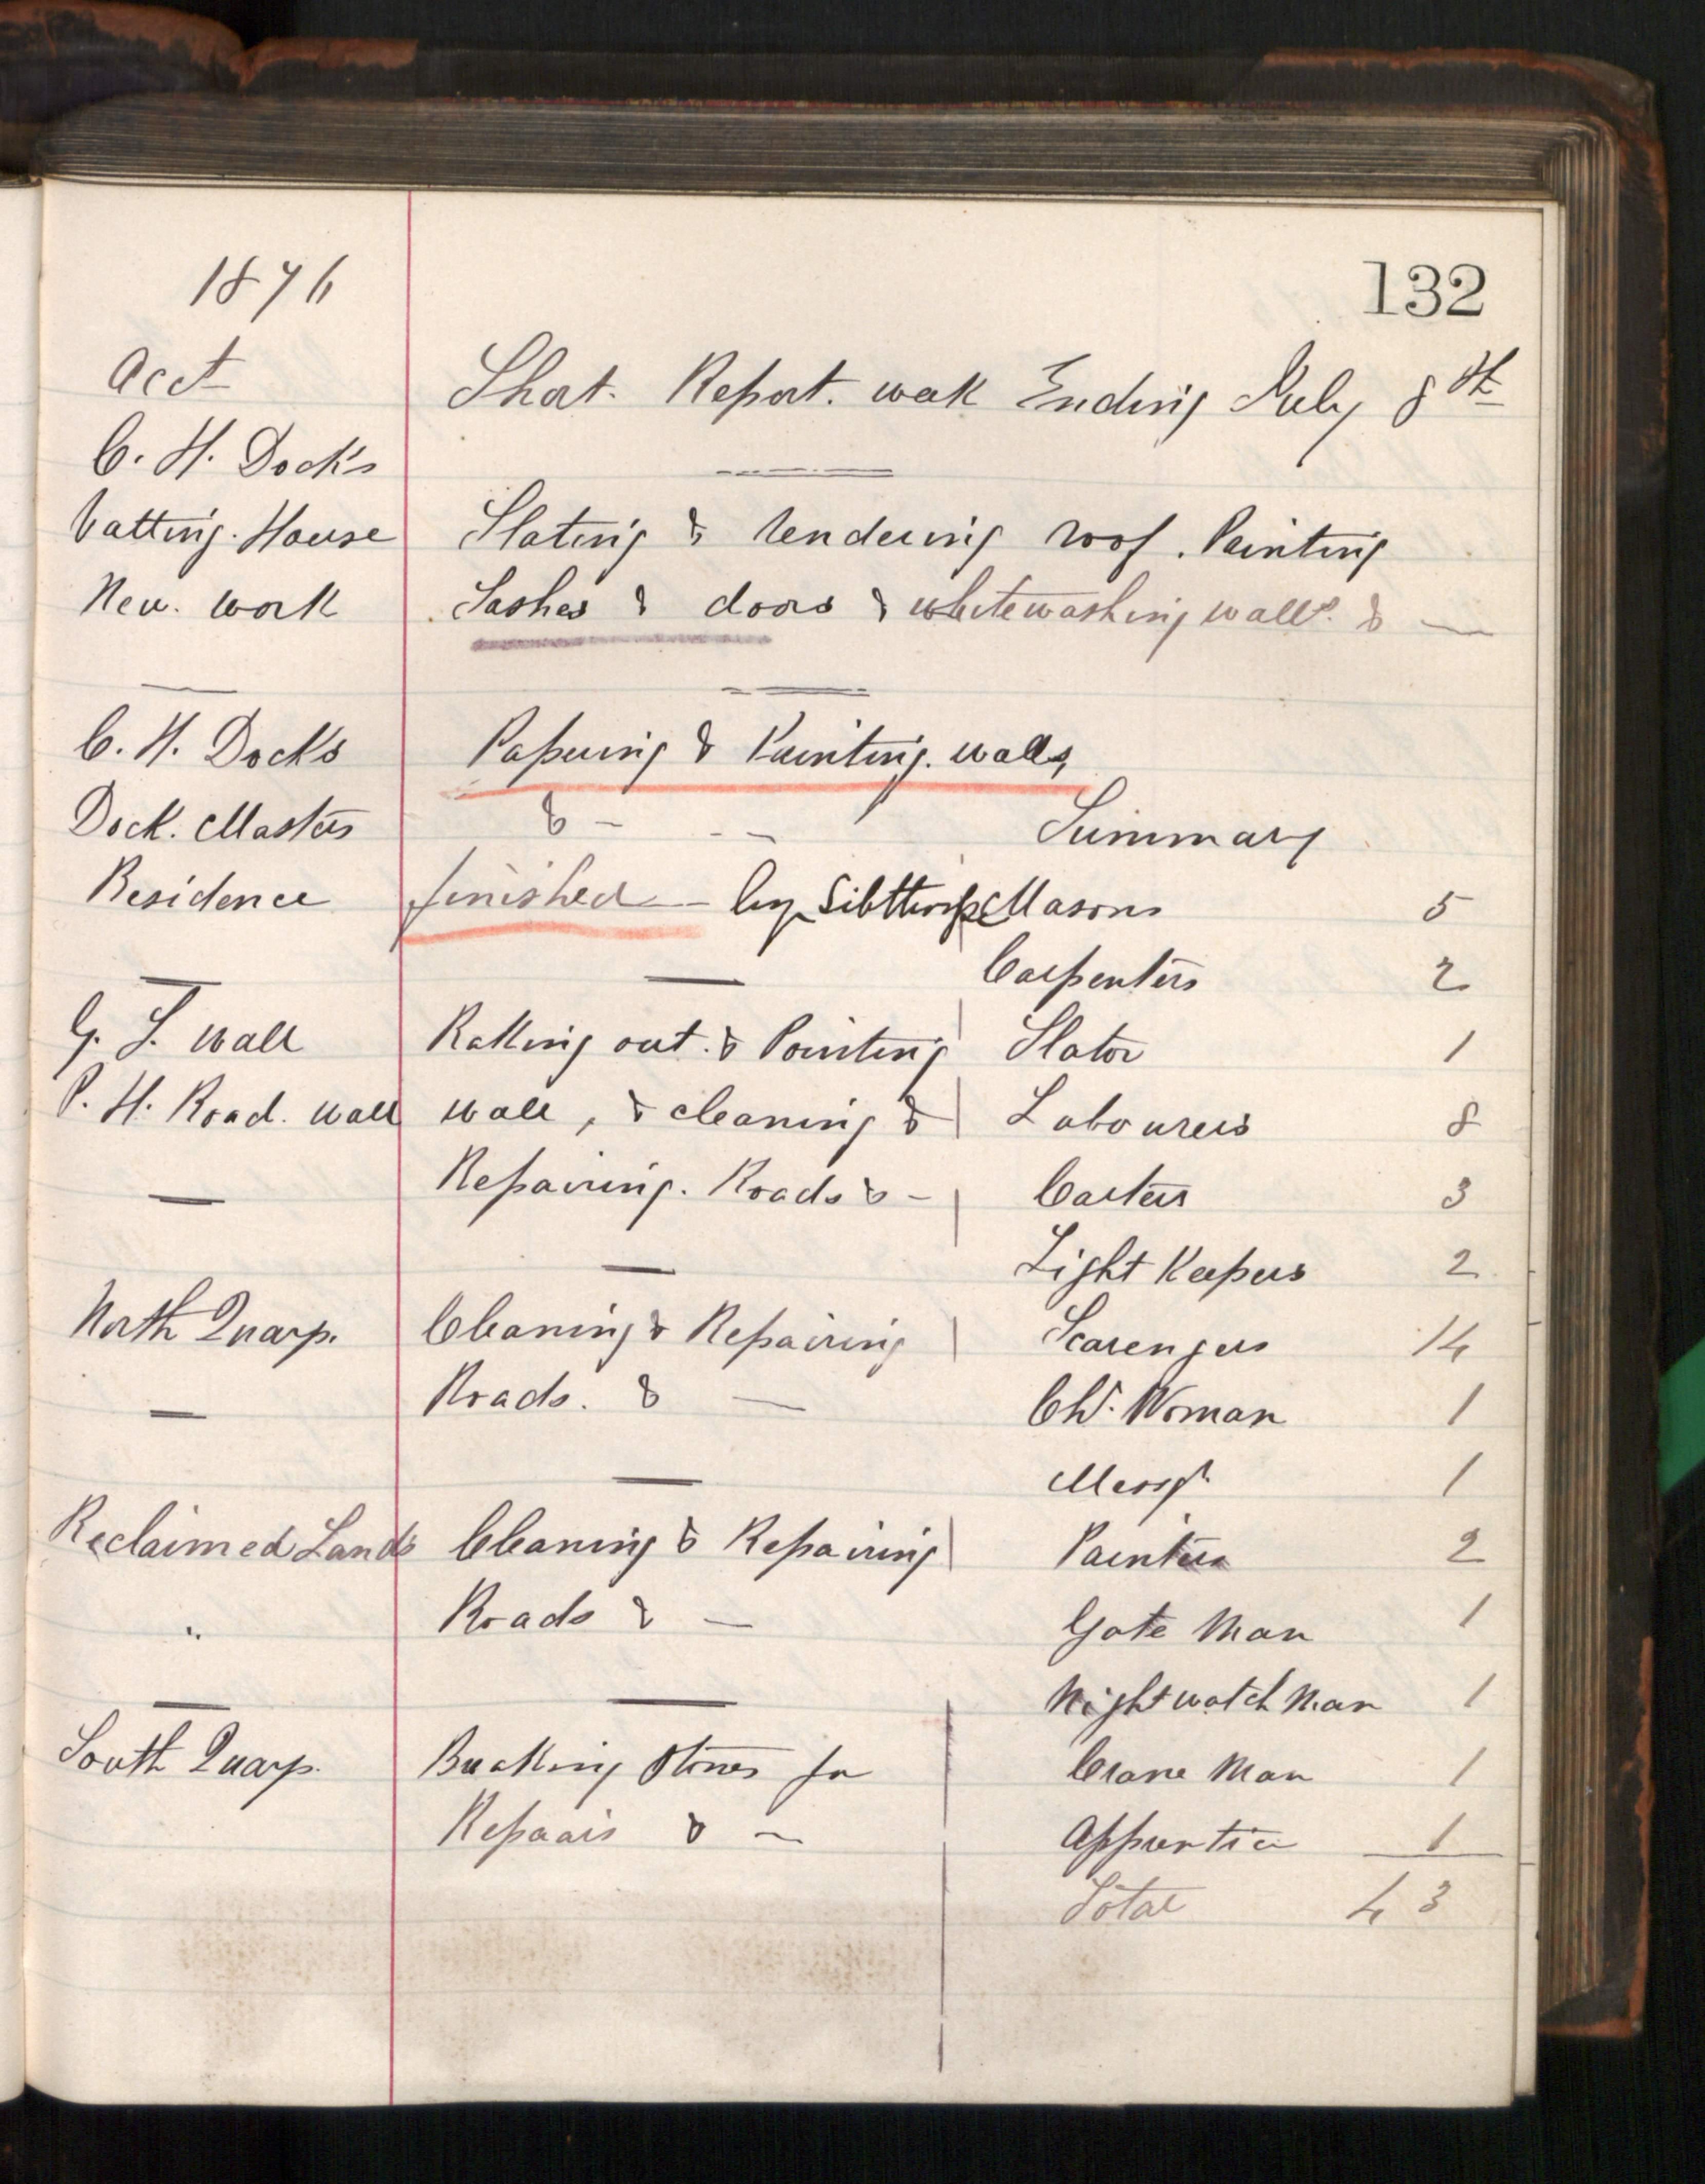 132
1876
Acct
Short. Report. week Ending July 8th
C. H. Docks
Vatting. House
Slating & rendering roof. Painting
New. work
Sashes & doors & whitewashing walls. & —
C. H. Docks
Papering & Painting. walls,
Dock. Masters
& - -
Residence
finished - by Sibthorpe
G. S. wall
Raking out. & Pointing
P. H. Road. wall
wall, & cleaning &
Repairing. Roads & -
North Quay.
Cleaning & Repairing
Roads. & —
Reclaimed Lands
Cleaning & Repairing
"
Roads & —
South Quay.
Breaking stones for
Repairs & —
Summary
Masons 5
Carpenters 2
Slator 1
Labourers 8
Carters 3
Light Keepers 2
Scavengers 14
Ch. Woman 1
Messr 1
Painters 2
Gate Man 1
Night watch Man 1
Crane Man 1
Apprentice 1
Total 43